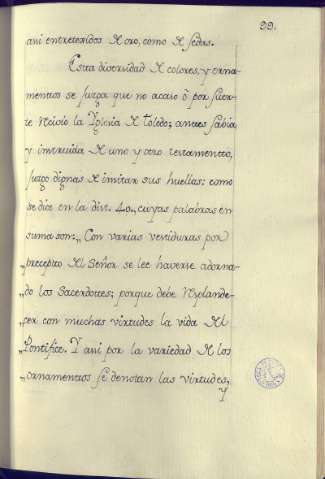 99.
asi entretexidos de oro, como de sedas.
Esta diversidad de colores, y orna-
mentos se juzga que no acaso ô por suer-
te recivio la Yglesia de Toledo; antes sabia
y instruida de uno y otro testamento,
juzgo dignas de imitar sus huellas: como
se dice en la dist. 40., cuyas palabras en
suma son: „Con varias vestiduras por
„precepto del Señor se lee haverse adorna-
„do los Sacerdotes; porque debe resplande-
„cer con muchas virtudes la vida del
„Pontifice. Y asi por la variedad de los
„ornamentos se denotan las virtudes;
y